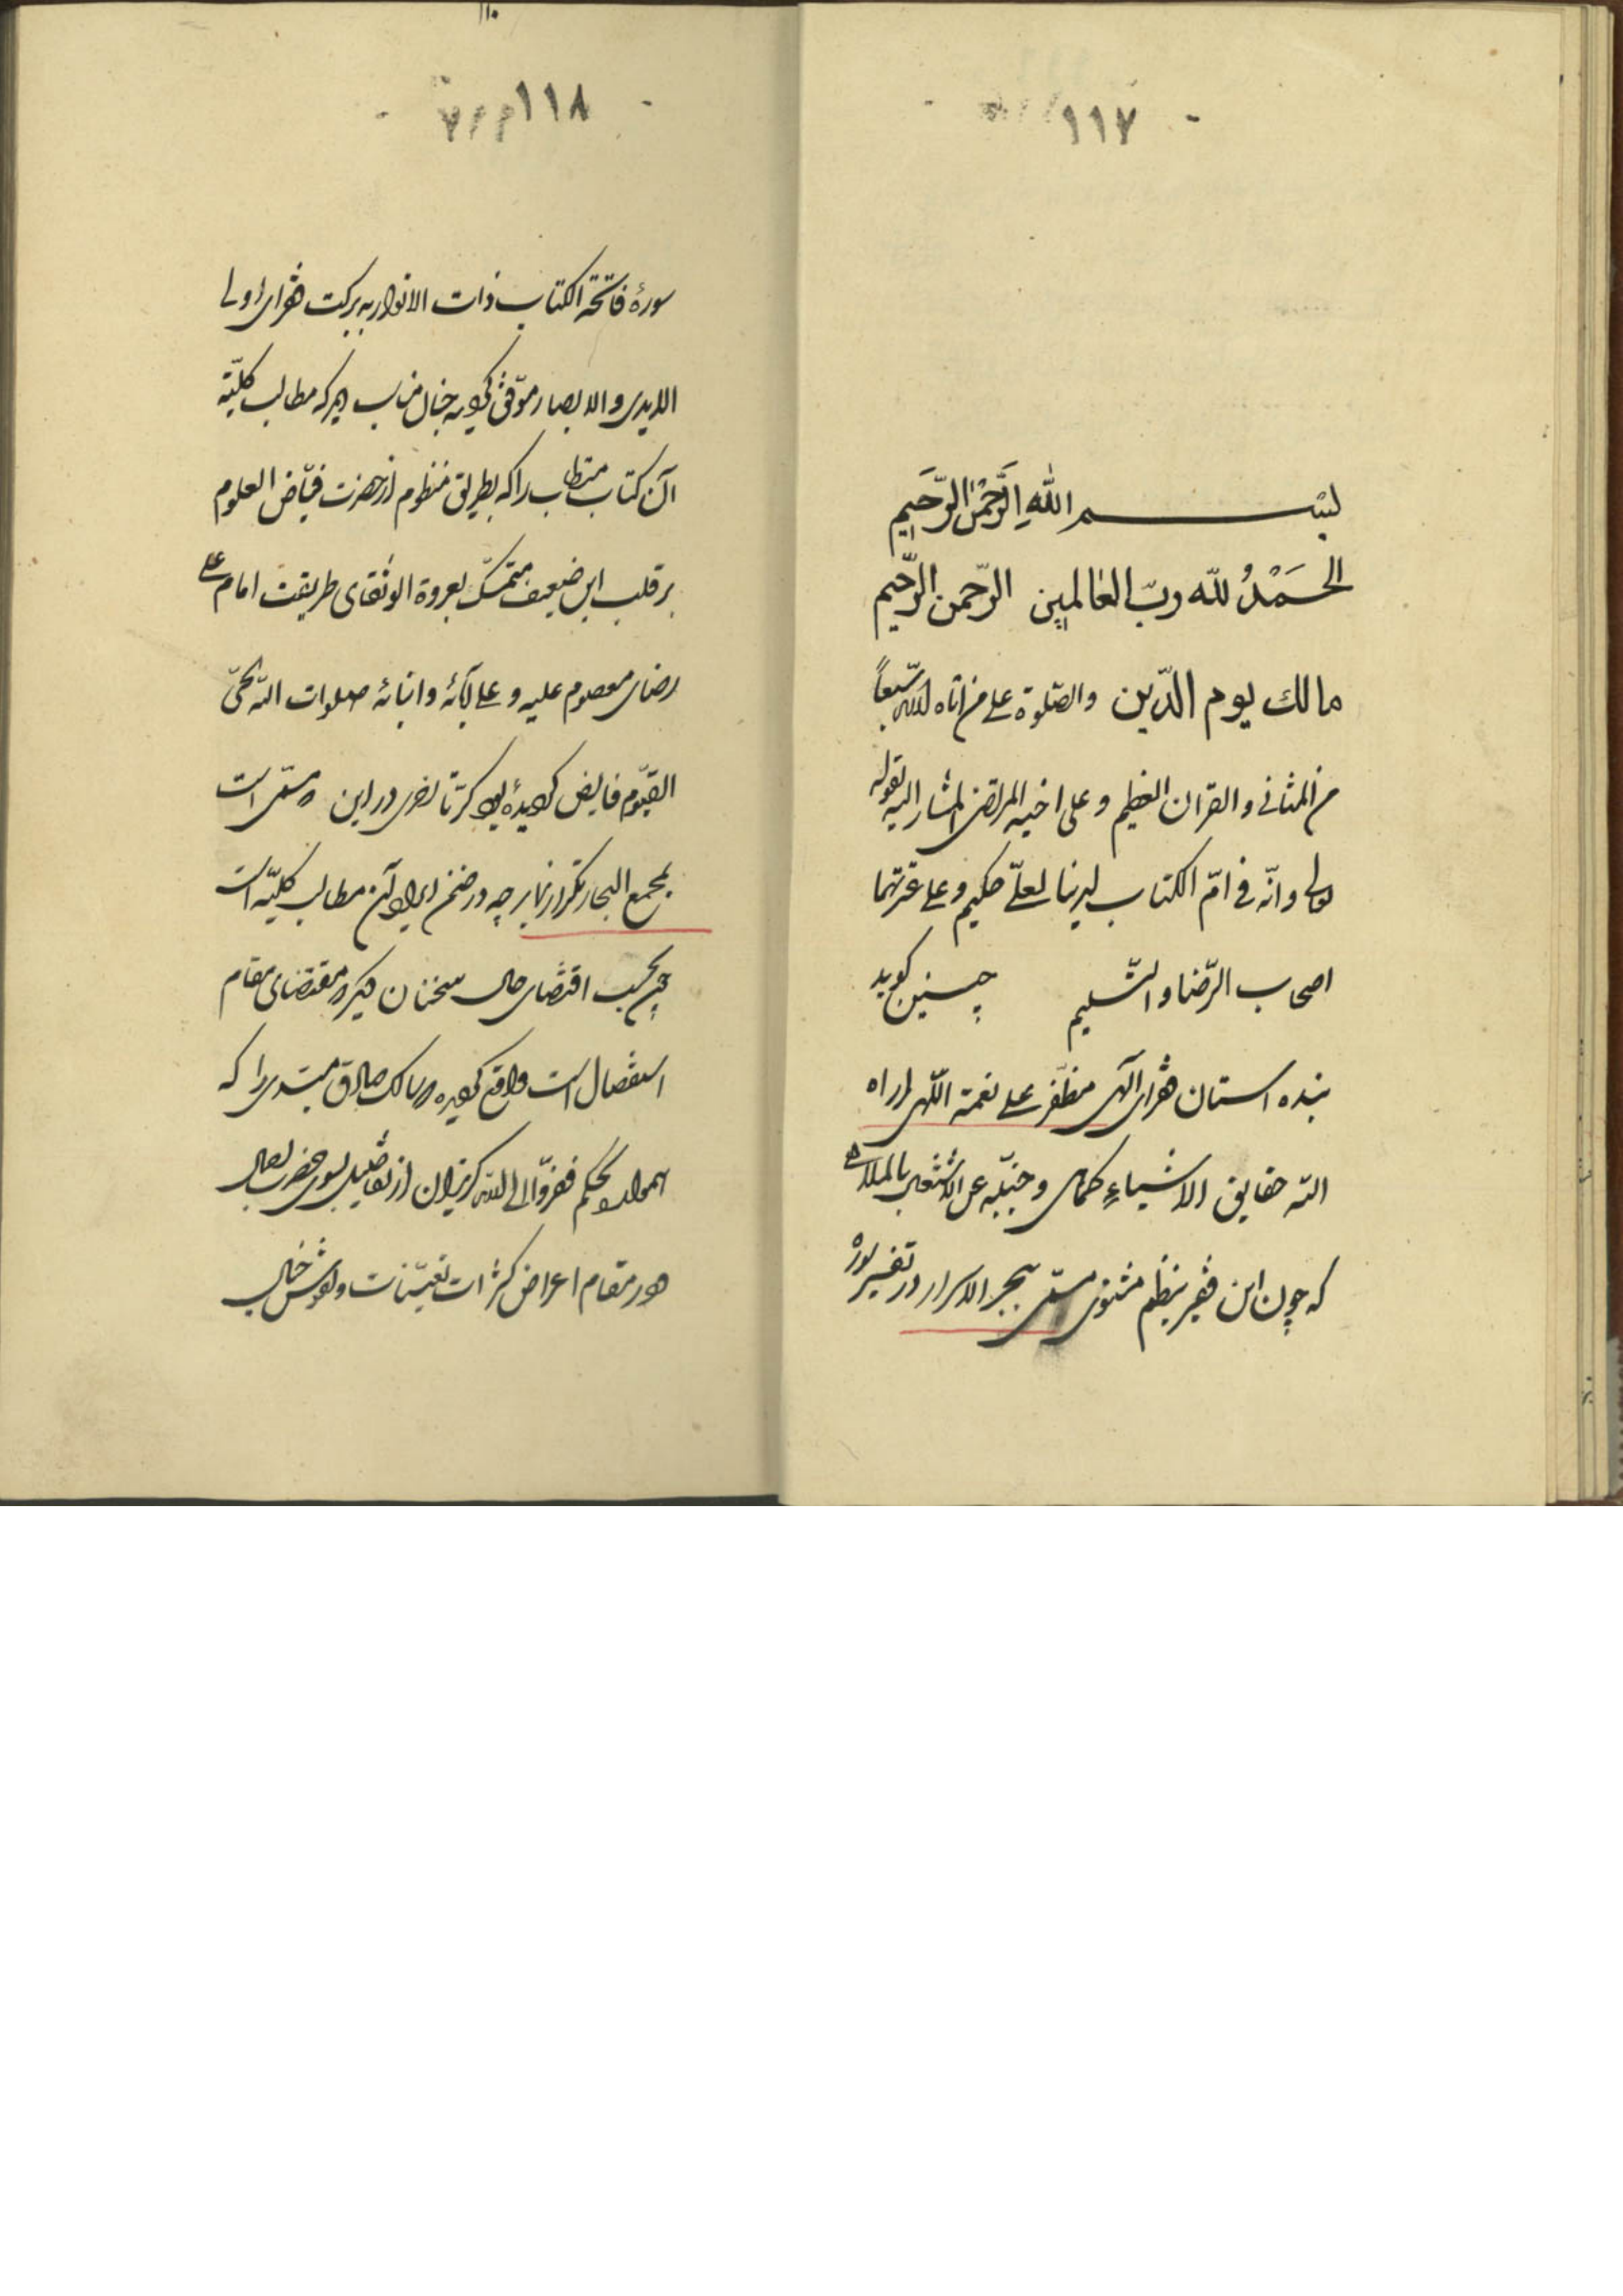 ۱۱۷
بسم الله الرحمن الرحیم
الحَمْدُ لله ربّ العالمین الرّحمن الرّحیم
مالك یوم الدّین والصّلوة علی من اتاه الله سبعاً
من المثانی والقرآن العظیم و علی اخیه المرتضی المشار الیه بقوله
تعالی وانّه فی امّ الکتاب لدینا لعلیّ حکیم و علی عترتهما
اصحاب الرّضا والتّسلیم چنین گوید
بنده آستان فقرای الهی مظفّر علی نعمة اللّهی اراه
الله حقایق الاشیاء کما هی و جنّبه عن الاشتغال بالملاهی
که چون این فقیر بنظم مثنوی مسمّی ببحر الاسرار در تفسیر سورهٔ
۱۱۸
سورهٔ فاتحة الکتاب ذات الانوار به برکت فقرای اولی
الایدی والابصار موفّق گردید چنان مناسب دید که مطالب کلیّهٔ
آن کتاب مستطاب را که بطریق منظوم از حضرت فیّاض العلوم
بر قلب این ضعیف متمسّک بعروة الوثقای طریقت امام علی
رضای معصوم علیه و علی آبائه و ابنائه صلوات الله الحیّ
القیّوم فایض گردیده بود کرّتاً اخری در این که مسمّی است
بمجمع البحار تکرار نماید چه در ضمن ایراد آن مطالب کلیّه است
چه بحسب اقتضای حال سخنان دیگر که مقتضای مقام
است واقع گردیده سالک صادق مبتدی را که
همواره بحکم ففرّوا الی الله گریزان از تفاصیل بسوی حضرت
در مقام اعراض کثرات تعیّنات و نقوش خیال